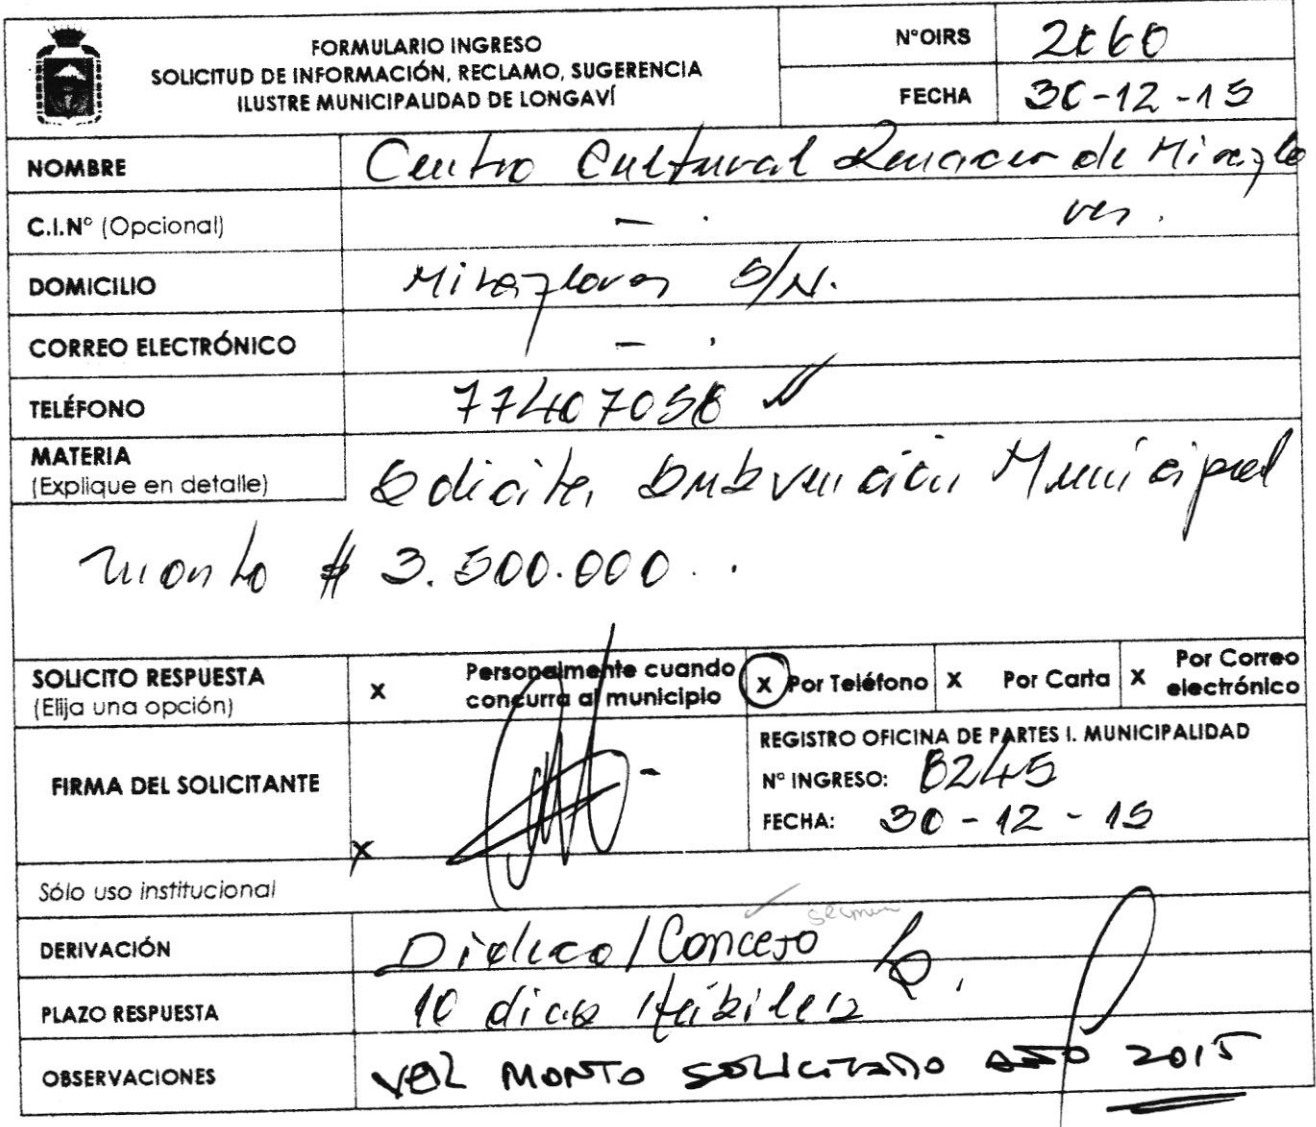 FORMULARIO INGRESO
SOLICITUD DE INFORMACIÓN, RECLAMO, SUGERENCIA
ILUSTRE MUNICIPALIDAD DE LONGAVÍ
N°OIRS 2060
FECHA 30-12-15
NOMBRE Centro Cultural Renacer de Miraflo
res.
C.I.N° (Opcional) - .
DOMICILIO Miraflores S/N.
CORREO ELECTRÓNICO - .
TELÉFONO 77407058
MATERIA
(Explique en detalle) Solicita Subvención Municipal
monto $ 3.500.000 . .
SOLICITO RESPUESTA
(Elija una opción)
X Personalmente cuando
concurra al municipio
X Por Teléfono
X Por Carta
X Por Correo
electrónico
FIRMA DEL SOLICITANTE
X
REGISTRO OFICINA DE PARTES I. MUNICIPALIDAD
N° INGRESO: 8245
FECHA: 30-12-15
Sólo uso institucional
DERIVACIÓN Dideco/Concejo
PLAZO RESPUESTA 10 días Hábiles
OBSERVACIONES VER MONTO SOLICITADO AÑO 2015